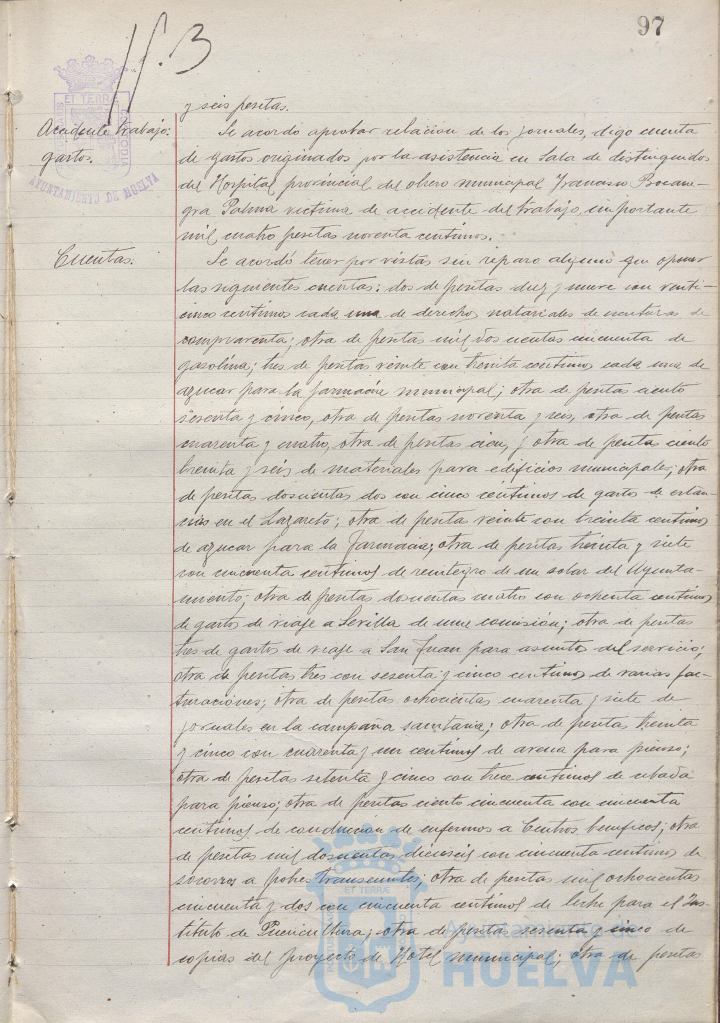 97
y seis pesetas.
Accidente trabajo:
gastos.
Se acordó aprobar relacion de los jornales, digo cuenta
de gastos originados por la asistencia en Sala de distinguidos
del Hospital provincial del obrero municipal Francisco Bocane-
gra Palma victima de accidente del trabajo, importante
mil cuatro pesetas noventa centimos.
Cuentas.
Se acordó tener por vistas sin reparo alguno que oponer
las siguientes cuentas: dos de pesetas diez y nueve con venti-
cinco centimos cada una de derechos notariales de escrituras de
compraventa; otra de pesetas mil dos cientas cincuenta de
gasolina; tres de pesetas veinte con treinta centimos cada una de
azucar para la farmacia municipal; otra de pesetas ciento
sesenta y cinco, otra de pesetas noventa y seis, otra de pesetas
cuarenta y cuatro, otra de pesetas cien, y otra de peseta ciento
treinta y seis de materiales para edificios municipales; otra
de pesetas doscientas dos con cinco centimos de gastos de estan-
cias en el Lazareto; otra de pesetas veinte con treinta centimos
de azucar para la Farmacia; otra de pesetas treinta y siete
con cincuenta centimos de reintegro de un solar del Ayunta-
miento; otra de pesetas doscientas cuatro con ochenta centimos
de gastos de viaje a Sevilla de una comisión; otra de pesetas
tres de gastos de viaje a San Juan para asunto del servicio;
otra de pesetas tres con sesenta y cinco centimos de varias fac-
turaciones; otra de pesetas ochocientas cuarenta y siete de
jornales en la campaña sanitaria; otra de pesetas treinta
y cinco con cuarenta y un centimos de avena para pienso;
otra de pesetas setenta y cinco con trece centimos de cebada
para pienso; otra de pesetas ciento cincuenta con cincuenta
centimos de conduccion de enfermos a Centros beneficos; otra
de pesetas mil doscientas dieciseis con cincuenta centimos de
socorros a pobres transeuntes; otra de pesetas mil ochocientas
cincuenta y dos con cincuenta centimos de leche para el Ins-
tituto de Puericultura; otra de pesetas sesenta y cinco de
copias del proyecto de Hotel municipal; otra de pesetas
AYUNTAMIENTO DE HUELVA
ET TERRÆ
Ayuntamiento de
HUELVA